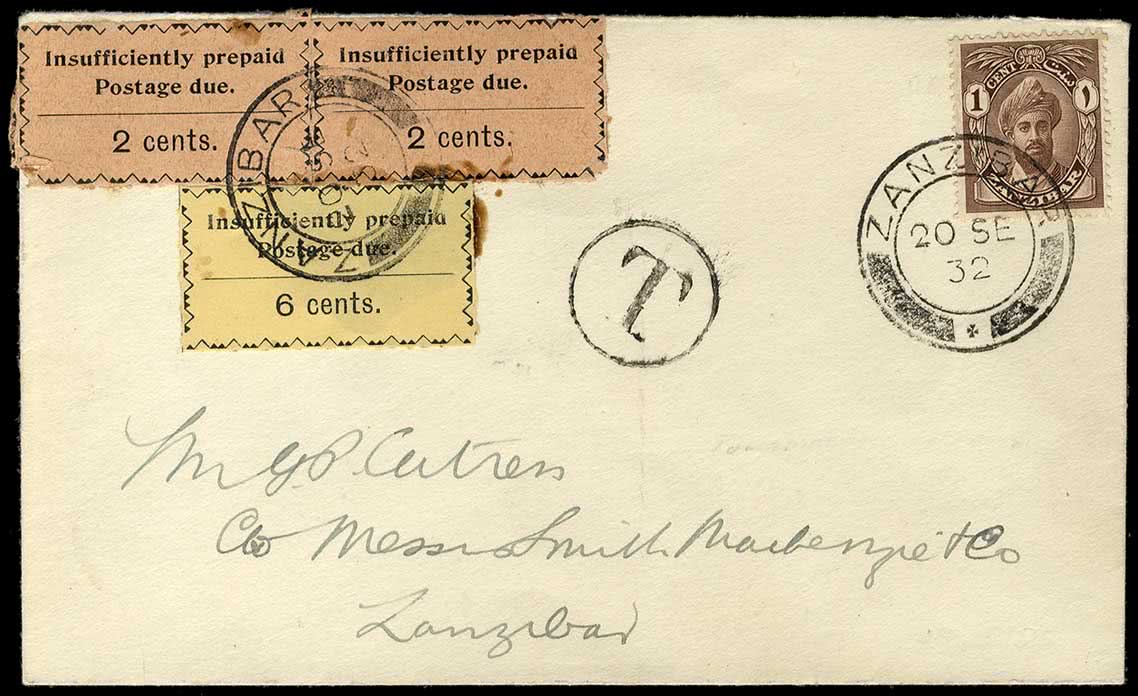 Insufficiently prepaid
Postage due.
2 cents.
Insufficiently prepaid
Postage due.
2 cents.
Insufficiently prepaid
Postage due.
6 cents.
ZANZIBAR
T
1 CENT ١ سنت
ZANZIBAR
ZANZIBAR
20 SE
32
Mr G P Cutress
C/o Messrs Smith Mackenzie & Co
Zanzibar